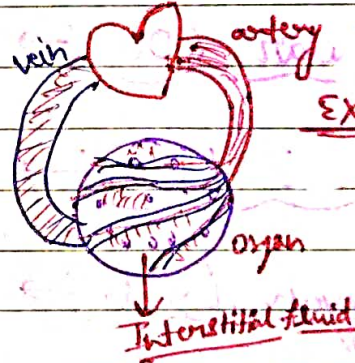 vein
artery
EX
organ
Interstitial fluid